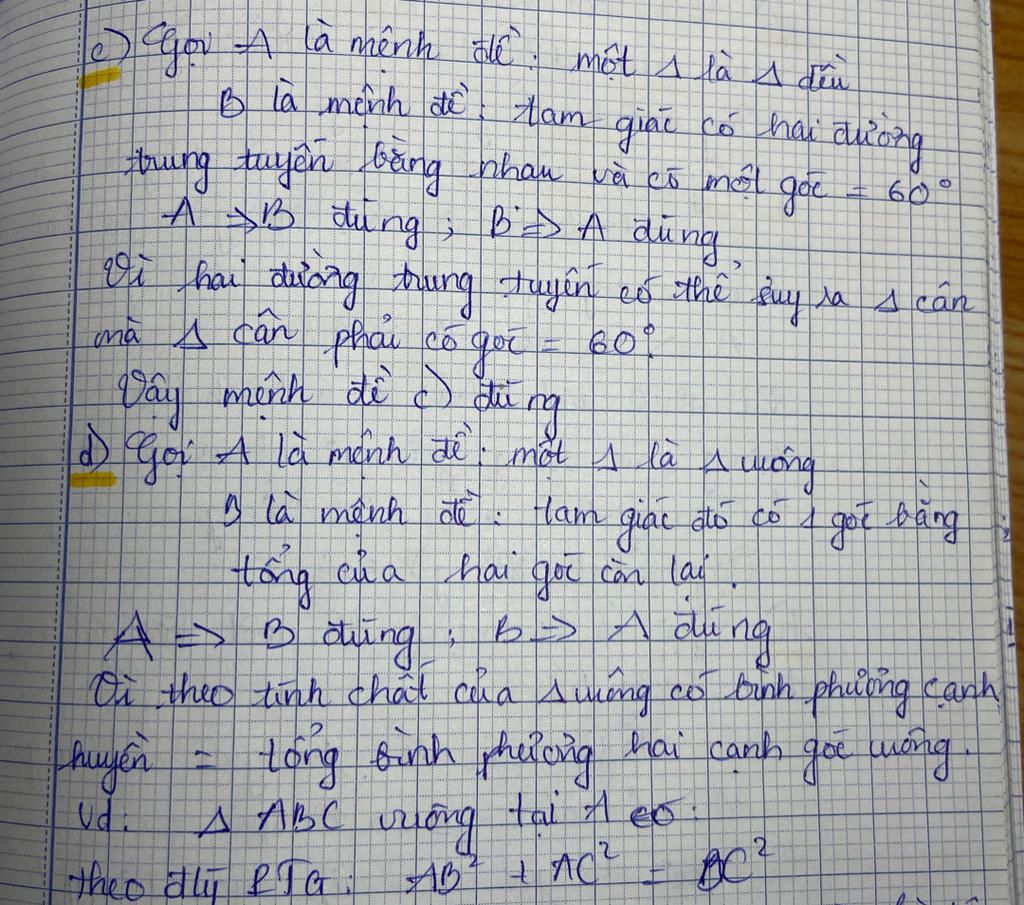 c) Gọi A là mệnh đề: một Δ là Δ đều
B là mệnh đề: tam giác có hai đường
trung tuyến bằng nhau và có một góc = 60°
A => B đúng; B => A đúng
Vì hai đường trung tuyến có thể suy ra Δ cân
mà Δ cân phải có góc = 60°.
Vậy mệnh đề c) đúng
d) Gọi A là mệnh đề: một Δ là Δ vuông
B là mệnh đề: tam giác đó có 1 góc bằng
tổng của hai góc còn lại.
A => B đúng; B => A đúng
Vì theo tính chất của Δ vuông có bình phương cạnh
huyền = tổng bình phương hai cạnh góc vuông.
Vd: Δ ABC vuông tại A có:
theo đlý PTG: AB² + AC² = BC²